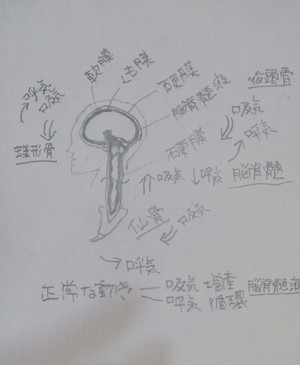 軟膜
くも膜
硬膜
脳脊髄液
後頭骨
呼気
吸気
蝶形骨
吸気
呼気
硬膜
吸気
呼気
脳脊髄
仙骨
吸気
呼気
正常な動き
吸気
呼気 循環
脳脊髄液